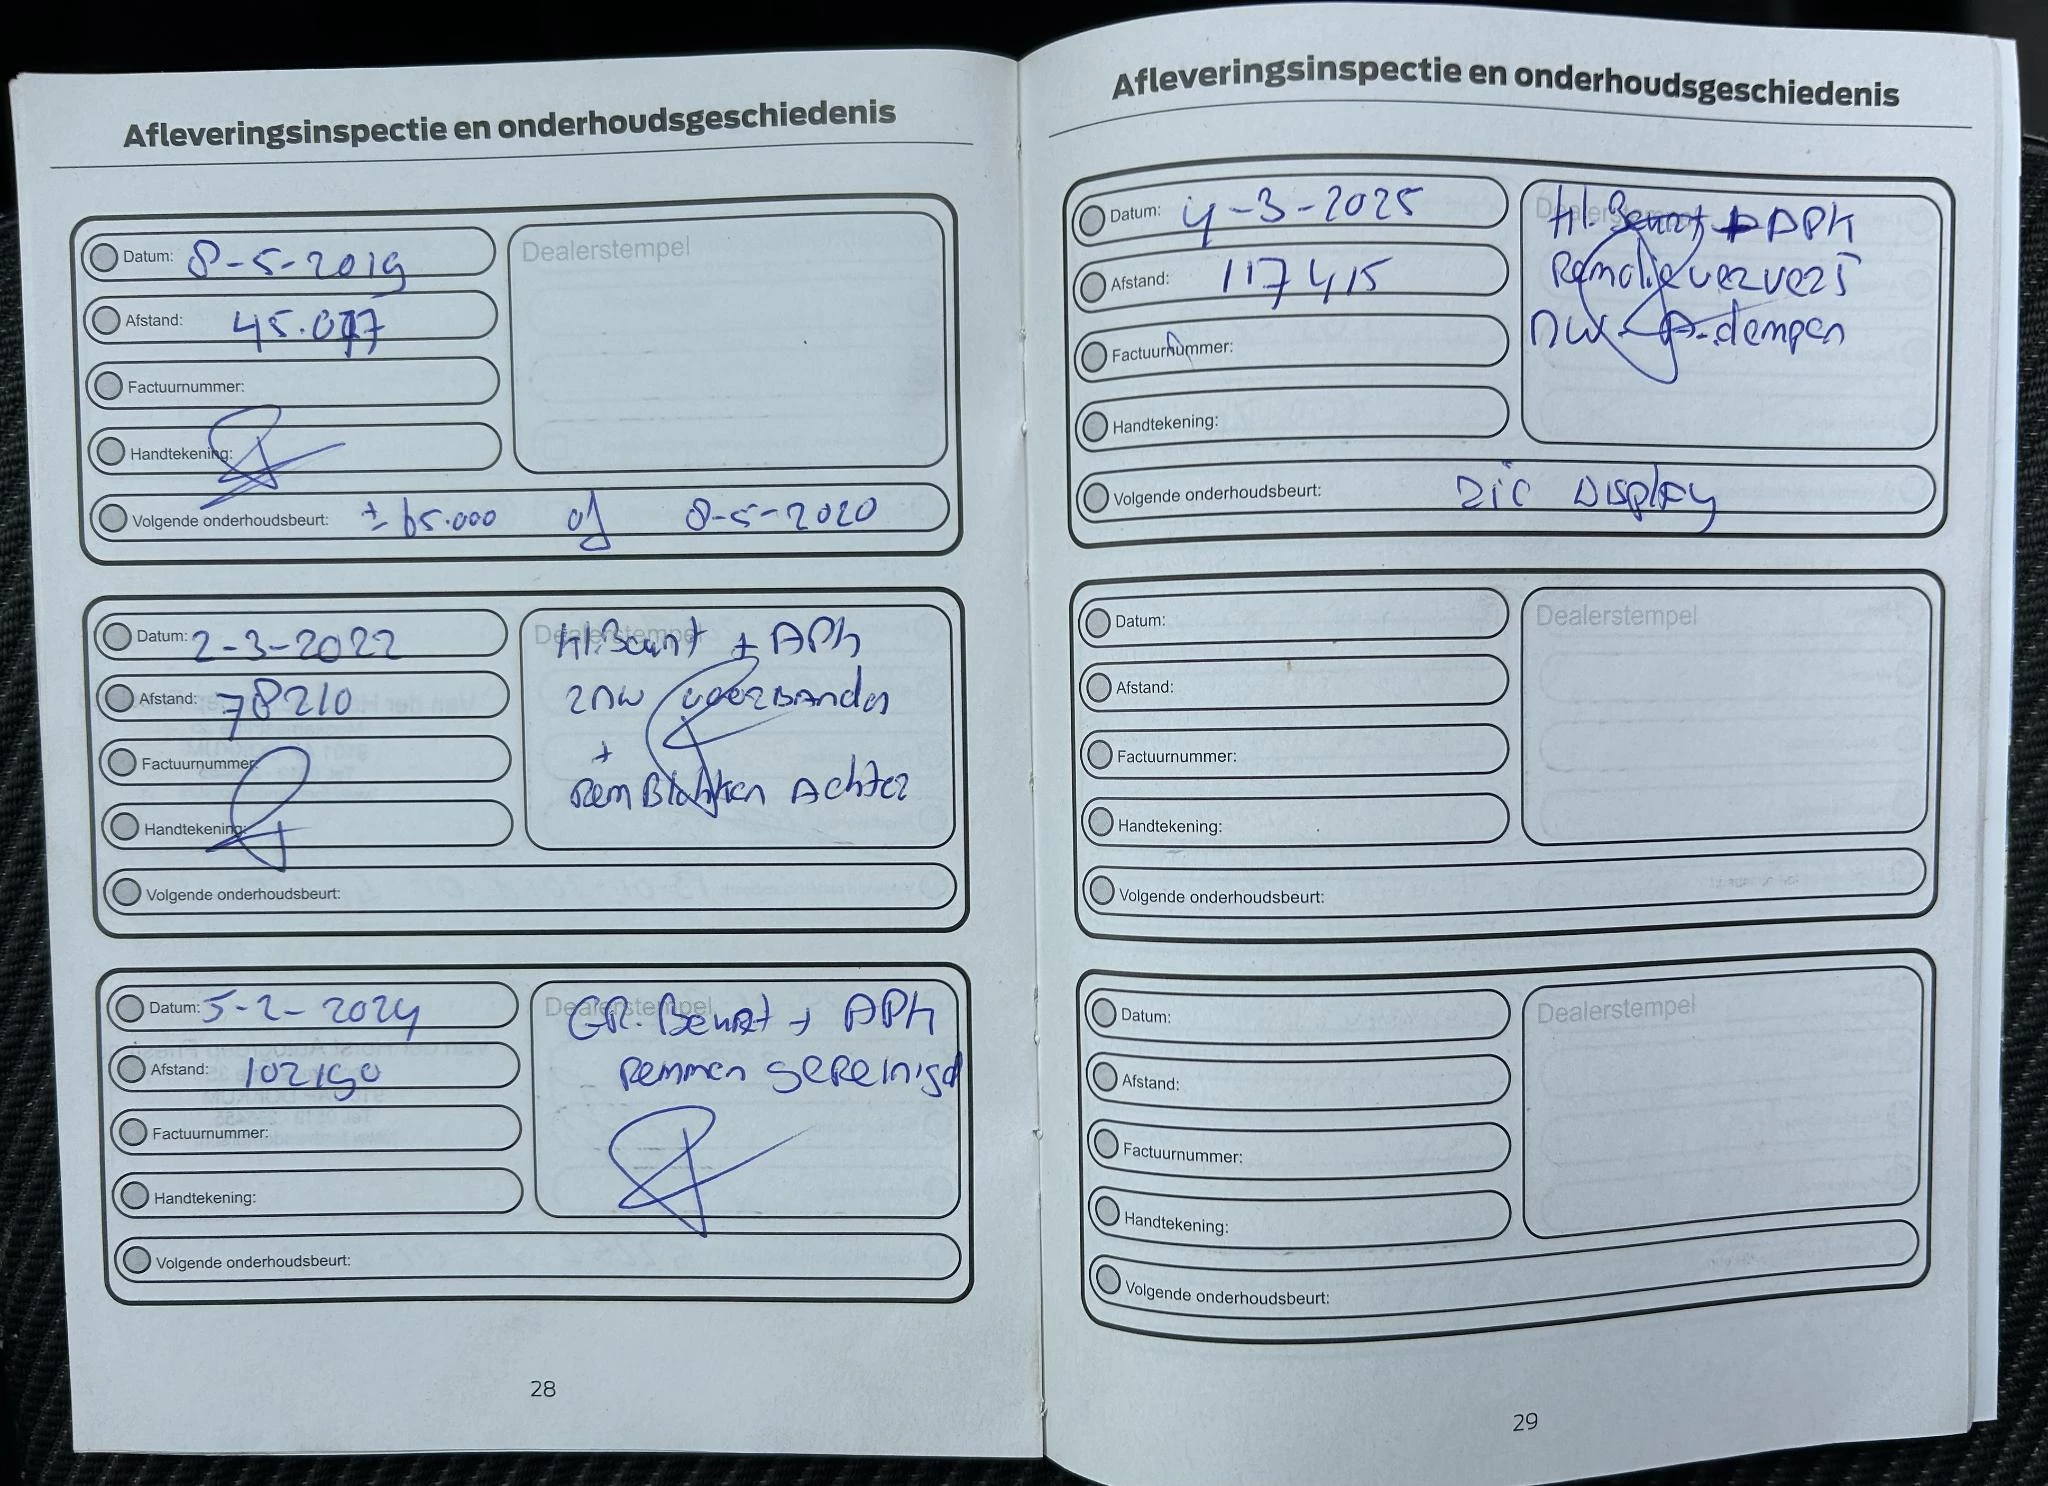 Afleveringsinspectie en onderhoudsgeschiedenis
Datum: 8-5-2019
Afstand: 45.077
Factuurnummer:
Handtekening:
Volgende onderhoudsbeurt: ± 65.000 of 8-5-2020
Dealerstempel
Datum: 2-3-2022
Afstand: 78210
Factuurnummer:
Handtekening:
Volgende onderhoudsbeurt:
Dealerstempel
Kl. Beurt + APK
2 nw voorbanden
+
Remblokken Achter
Datum: 5-2-2024
Afstand: 102190
Factuurnummer:
Handtekening:
Volgende onderhoudsbeurt:
Dealerstempel
GR. Beurt + APK
Remmen gereinigd
28
Afleveringsinspectie en onderhoudsgeschiedenis
Datum: 4-3-2025
Afstand: 117415
Factuurnummer:
Handtekening:
Volgende onderhoudsbeurt: Zie Display
Dealerstempel
Kl. Beurt + APK
Remolie ververst
nw dempen
Datum:
Afstand:
Factuurnummer:
Handtekening:
Volgende onderhoudsbeurt:
Dealerstempel
Datum:
Afstand:
Factuurnummer:
Handtekening:
Volgende onderhoudsbeurt:
Dealerstempel
29